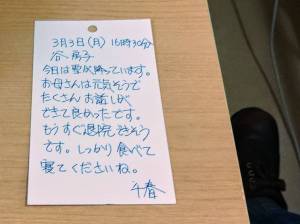 3月3日(月) 16時30分
谷 房子
今日は雪が降っています。
お母さんは元気そうで
たくさんお話しが
できて良かったです。
もうすぐ退院できそう
です。しっかり食べて
寝てくださいね。
千春